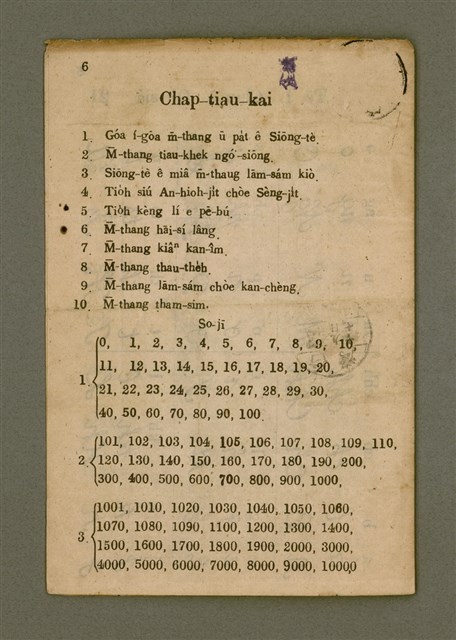 6
Cha̍p-tiau-kài
1. Góa í-gōa m̄-thang ū pa̍t ê Siōng-tè.
2. M̄-thang tiau-khek ngó͘-siōng.
3. Siōng-tè ê miâ m̄-thang lām-sám kiò.
4. Tio̍h siú An-hioh-ji̍t chòe Sèng-ji̍t.
5. Tio̍h kèng lí e pē-bú.
6. M̄-thang hāi-sí lâng.
7. M̄-thang kiâⁿ kan-îm.
8. M̄-thang thau-the̍h.
9. M̄-thang lām-sám chòe kan-chèng.
10. M̄-thang tham-sim.
So-jī
0, 1, 2, 3, 4, 5, 6, 7, 8, 9, 10,
11, 12, 13, 14, 15, 16, 17, 18, 19, 20,
1. 21, 22, 23, 24, 25, 26, 27, 28, 29, 30,
40, 50, 60, 70, 80, 90, 100.
101, 102, 103, 104, 105, 106, 107, 108, 109, 110,
2. 120, 130, 140, 150, 160, 170, 180, 190, 200,
300, 400, 500, 600, 700, 800, 900, 1000,
1001, 1010, 1020, 1030, 1040, 1050, 1060,
1070, 1080, 1090, 1100, 1200, 1300, 1400,
3. 1500, 1600, 1700, 1800, 1900, 2000, 3000,
4000, 5000, 6000, 7000, 8000, 9000, 10000